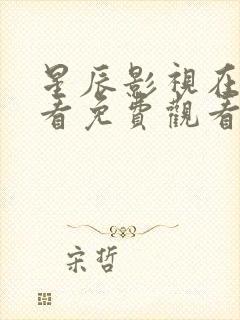 星辰影視在
看免費觀看
宋哲